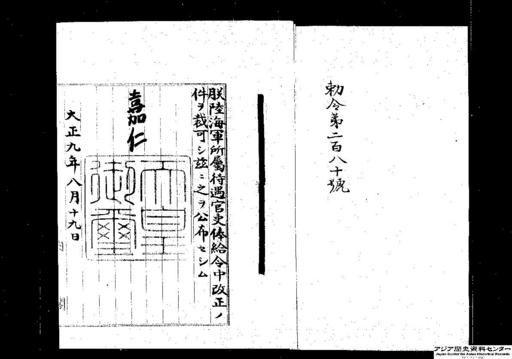 勅令第二百八十號
朕陸海軍所屬待遇官吏俸給令中改正ノ
件ヲ裁可シ玆ニ之ヲ公布セシム
嘉仁
天皇
御璽
大正九年八月十九日
アジア歴史資料センター
Japan Center for Asian Historical Records